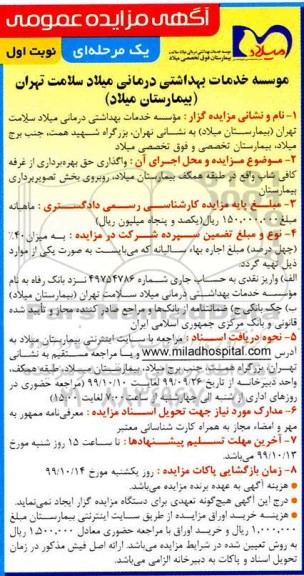 آگهی مزایده عمومی
یک مرحله‌ای
نوبت اول
میلاد
موسسه خدمات بهداشتی درمانی میلاد سلامت تهران
بیمارستان فوق تخصصی میلاد
موسسه خدمات بهداشتی درمانی میلاد سلامت تهران
(بیمارستان میلاد)
۱- نام و نشانی مزایده گزار : مؤسسه خدمات بهداشتی درمانی میلاد سلامت
تهران (بیمارستان میلاد) به نشانی تهران، بزرگراه شهید همت، جنب برج
میلاد، بیمارستان تخصصی و فوق تخصصی میلاد
۲- موضوع مزایده و محل اجرای آن : واگذاری حق بهره‌برداری از غرفه
کافی‌شاپ واقع در طبقه همکف بیمارستان میلاد، روبروی بخش تصویربرداری
بیمارستان
۳- مبلغ پایه مزایده کارشناسی رسمی دادگستری : ماهیانه
مبلغ ۱۵۰.۰۰۰.۰۰۰ ریال(یکصد و پنجاه میلیون ریال)
۴- نوع و مبلغ تضمین سپرده شرکت در مزایده : به میزان ۴۰٪
(چهل درصد) مبلغ اجاره بهاء سالیانه که می‌بایست به صورت یکی از موارد
ذیل تهیه گردد.
الف) واریز نقدی به حساب جاری شماره ۴۹۷۵۴۷۸۶ نزد بانک رفاه به نام
مؤسسه خدمات بهداشتی درمانی میلاد سلامت تهران (بیمارستان میلاد)
ب) چک بانکی ج) ضمانتنامه از بانکها و مراجع صادر کننده مجاز و تأیید شده
قانونی و بانک مرکزی جمهوری اسلامی ایران
۵- نحوه دریافت اسناد : مراجعه با سایت اینترنتی بیمارستان میلاد به
آدرس www.miladhospital.com و یا مراجعه مستقیم به نشانی
تهران، بزرگراه همت، جنب برج میلاد، بیمارستان میلاد، طبقه همکف،
واحد دبیرخانه از تاریخ ۹۹/۰۹/۲۶ لغایت ۹۹/۱۰/۱۰ (مراجعه حضوری در
روزهای اداری از شنبه الی چهارشنبه از ساعت ۸:۰۰ لغایت ۱۵:۰۰)
۶- مدارک مورد نیاز جهت تحویل اسناد مزایده : معرفی‌نامه ممهور به
مهر و امضاء مجاز به همراه کارت شناسائی معتبر
۷- آخرین مهلت تسلیم پیشنهادها : تا ساعت ۱۵ روز شنبه مورخ
۹۹/۱۰/۱۳ می‌باشد.
۸- زمان بازگشایی پاکات مزایده : روز یکشنبه مورخ ۹۹/۱۰/۱۴
● هزینه آگهی به عهده برنده مزایده می‌باشد.
● درج این آگهی هیچ‌گونه تعهدی برای دستگاه مزایده گزار ایجاد نمی‌نماید.
● هزینه خرید اوراق مزایده از طریق سایت اینترنتی بیمارستان مبلغ
۱.۰۰۰.۰۰۰ ریال و خرید اوراق با مراجعه حضوری معادل ۱.۵۰۰.۰۰۰ ریال
به روش تعیین شده در شرایط مزایده می‌باشد. ارائه اصل فیش مذکور در زمان
تحویل اسناد و پاکات به دبیرخانه الزامی می‌باشد.